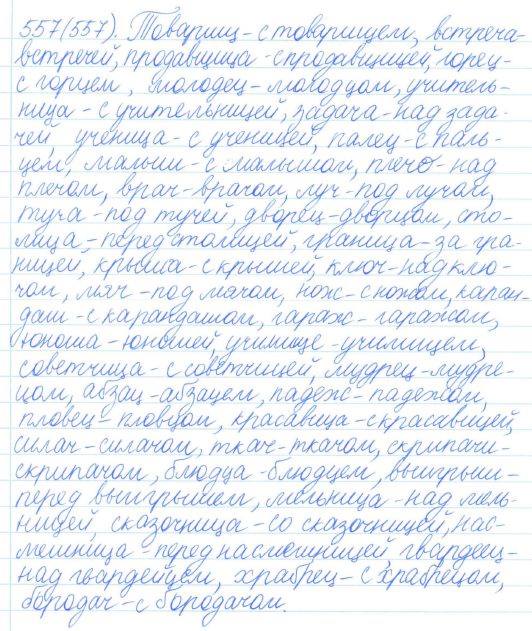 557(557). Товарищ - с товарищем, встреча-
встречей, продавщица - с продавщицей, горец-
с горцем, молодец - молодцом, учитель-
ница - с учительницей, задача - над зада-
чей, ученица - с ученицей, палец - с паль-
цем, малыш - с малышом, плечо - над
плечом, врач - врачом, луч - под лучом,
туча - под тучей, дворец - дворцом, сто-
лица - перед столицей, граница - за гра-
ницей, крыша - с крышей, ключ - над клю-
чом, мяч - под мячом, нож - с ножом, каран-
даш - с карандашом, гараж - гаражом,
юноша - юношей, училище - училищем,
советчица - с советчицей, мудрец - мудре-
цом, абзац - абзацем, падеж - падежом,
пловец - пловцом, красавица - с красавицей,
силач - силачом, ткач - ткачом, скрипачи-
скрипачом, блюдца - блюдцем, выигрыш-
перед выигрышем, мельница - над мель-
ницей, сказочница - со сказочницей, нас-
мешница - перед насмешницей, гвардеец-
над гвардейцем, храбрец - с храбрецом,
бородач - с бородачом.